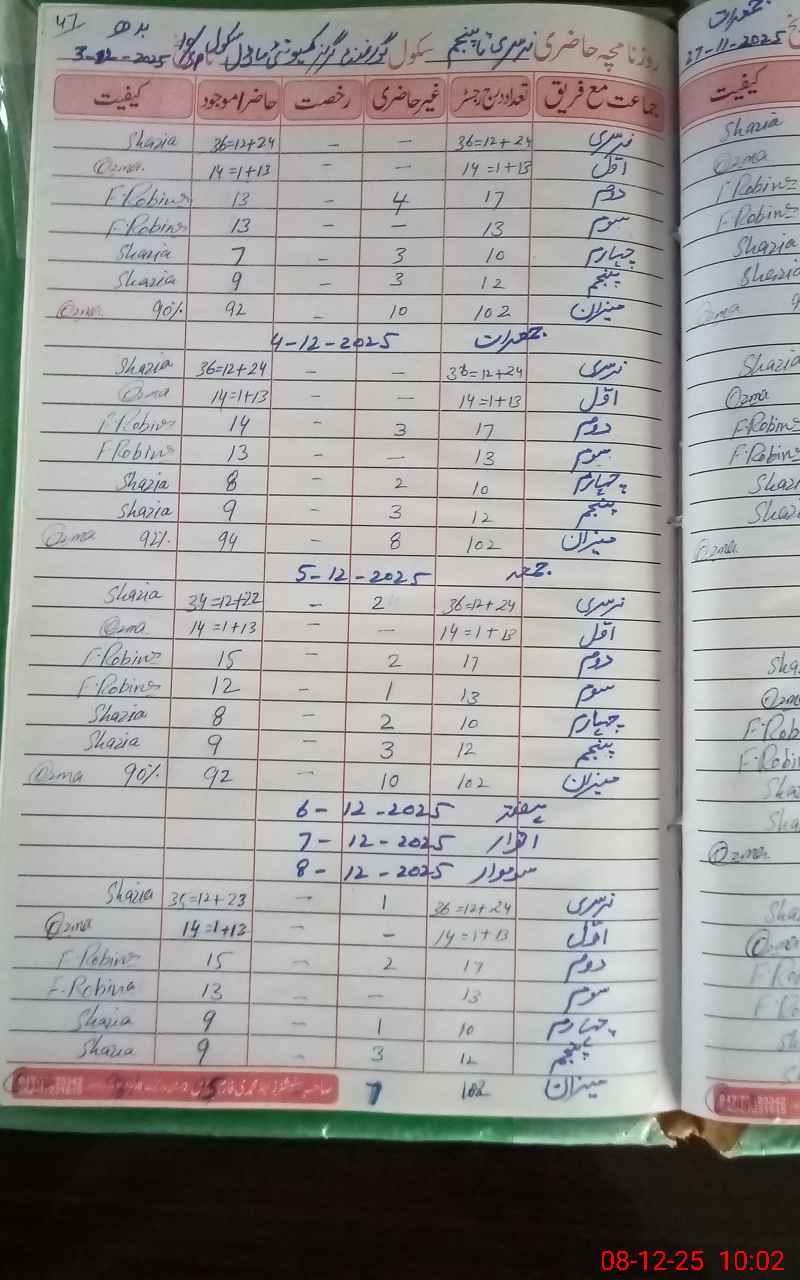 47
بدھ
روزنامچہ حاضری نرسری تا پنجم سکول گورنمنٹ گرلز کمیونٹی ماڈل سکول
3-12-2025
جماعت مع فریق تعداد درج رجسٹر غیر حاضری رخصت حاضر/موجود کیفیت
نرسری 36=12+24 – – 36=12+24 Shazia
اوّل 14=1+13 – – 14=1+13 Ozma
دوم 17 4 – 13 F-Robina
سوم 13 – – 13 F-Robina
چہارم 10 3 – 7 Shazia
پنجم 12 3 – 9 Shazia
میزان 102 10 – 92 90% Ozma
جمعرات 4-12-2025
نرسری 36=12+24 – – 36=12+24 Shazia
اوّل 14=1+13 – – 14=1+13 Ozma
دوم 17 3 – 14 F-Robina
سوم 13 – – 13 F-Robina
چہارم 10 2 – 8 Shazia
پنجم 12 3 – 9 Shazia
میزان 102 8 – 94 92% Ozma
جمعہ 5-12-2025
نرسری 36=12+24 2 – 34=12+22 Shazia
اوّل 14=1+13 – – 14=1+13 Ozma
دوم 17 2 – 15 F-Robina
سوم 13 1 – 12 F-Robina
چہارم 10 2 – 8 Shazia
پنجم 12 3 – 9 Shazia
میزان 102 10 – 92 90% Ozma
ہفتہ 6-12-2025
اتوار 7-12-2025
سوموار 8-12-2025
نرسری 36=12+24 1 – 35=12+23 Shazia
اوّل 14=1+13 – – 14=1+13 Ozma
دوم 17 2 – 15 F-Robina
سوم 13 – – 13 F-Robina
چہارم 10 1 – 9 Shazia
پنجم 12 3 – 9 Shazia
میزان 102 7
جمعرات
27-11-2025
کیفیت
Shazia
Ozma
F-Robina
F-Robina
Shazia
Shazia
Ozma
Shazia
Ozma
F-Robina
F-Robina
Ozma
Ozma
08-12-25 10:02